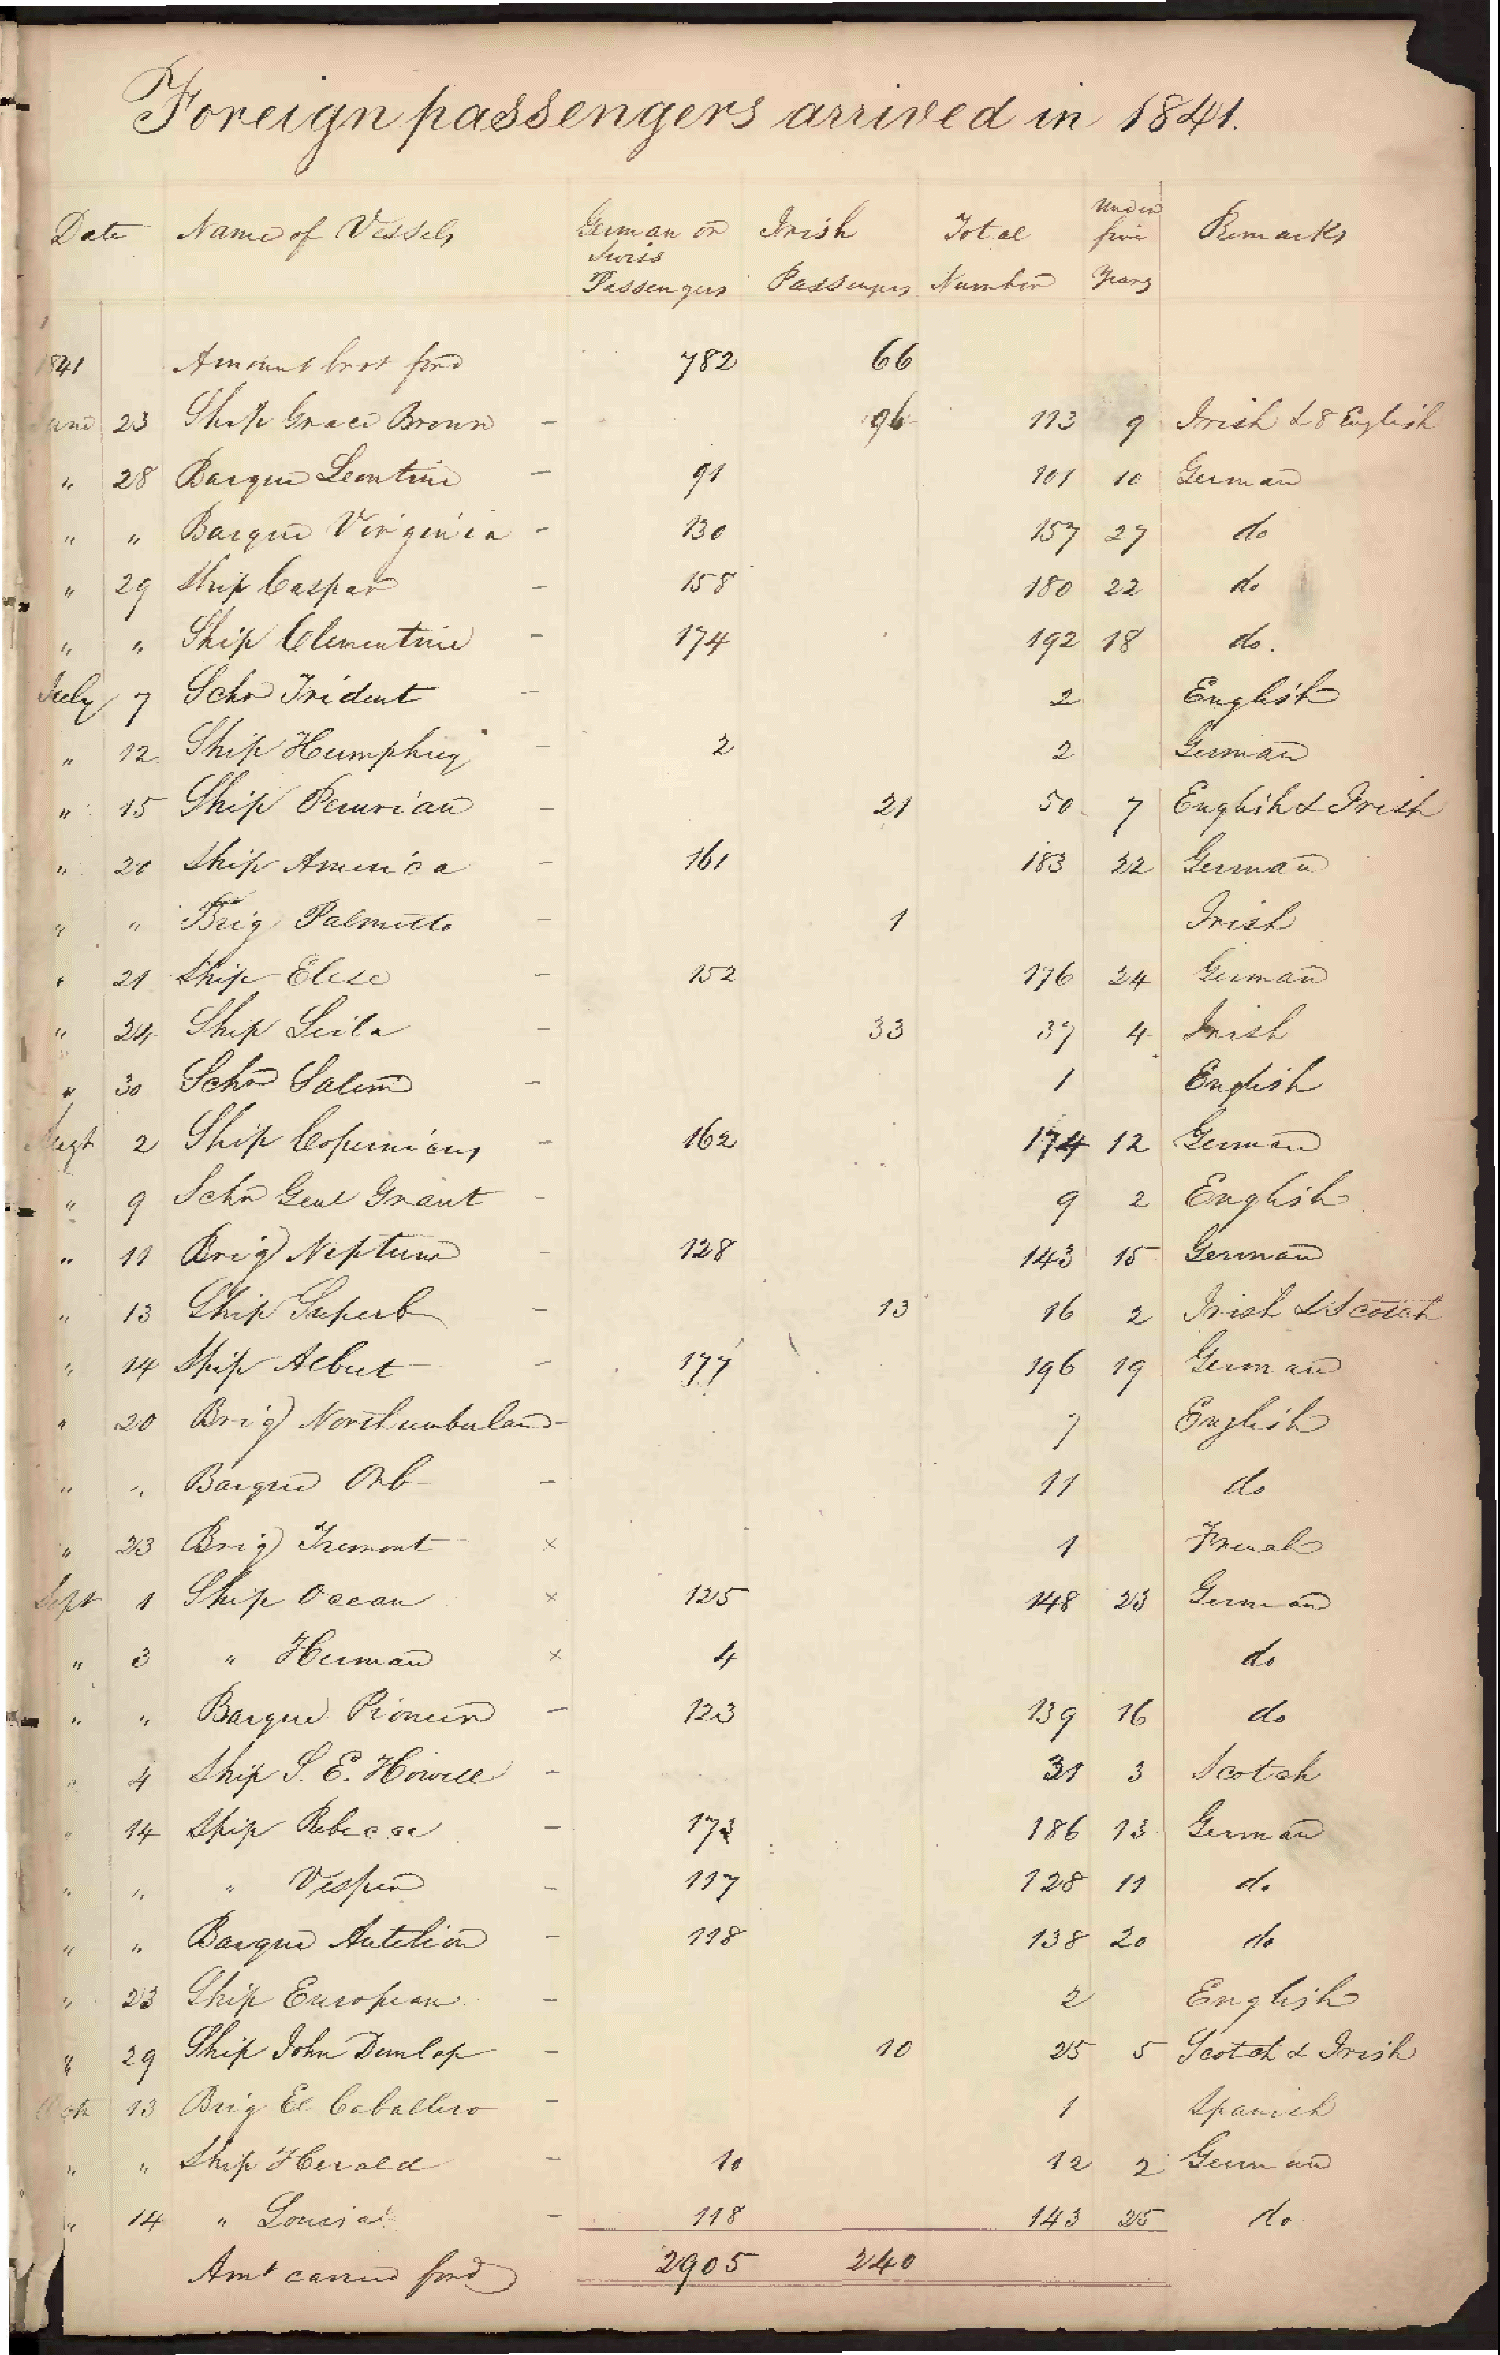 Foreign passengers arrived in 1841.
Date Name of Vessels German or Swiss Passengers Irish Passengers Total Number Under five Years Remarks
1841 Amount brot ford 782 66
June 23 Ship Grace Brown - 96 113 9 Irish & 8 English
" 28 Barque Leontine - 91 101 10 German
" " Barque Virginia - 130 157 27 do
" 29 Ship Caspar - 158 180 22 do
" " Ship Clementine - 174 192 18 do.
July 7 Schr Trident - 2 English
" 12 Ship Humphrey - 2 2 German
" 15 Ship Peruvian - 21 50 7 English & Irish
" 20 Ship America - 161 183 22 German
" " Brig Palmetto - 1 Irish
" 21 Ship Elise - 152 176 24 German
" 24 Ship Leila - 33 37 4 Irish
" 30 Schr Salem - 1 English
Augt 2 Ship Copernicus - 162 174 12 German
" 9 Schr Genl Grant - 9 2 English
" 11 Brig Neptune - 128 143 15 German
" 13 Ship Superb - 13 16 2 Irish & Scotch
" 14 Ship Albert - 177 196 19 German
" 20 Brig Northumberland - 7 English
" " Barque Orb - 11 do
" 23 Brig Tremont × 1 French
Sept 1 Ship Ocean × 125 148 23 German
" 3 " Herman × 4 do
" " Barque Pioneer - 123 139 16 do
" 4 Ship S. E. Howell - 31 3 Scotch
" 14 Ship Rebecca - 173 186 13 German
" " " Vesper - 117 128 11 do
" " Barque - 118 138 20 do
" 23 Ship European - 2 English
" 29 Ship John Dunlap - 10 25 5 Scotch & Irish
Octr 13 Brig El Caballero - 1 Spanish
" " Ship Herald - 10 12 2 German
" 14 " Louisa - 118 143 25 do
Amt carried ford 2905 240